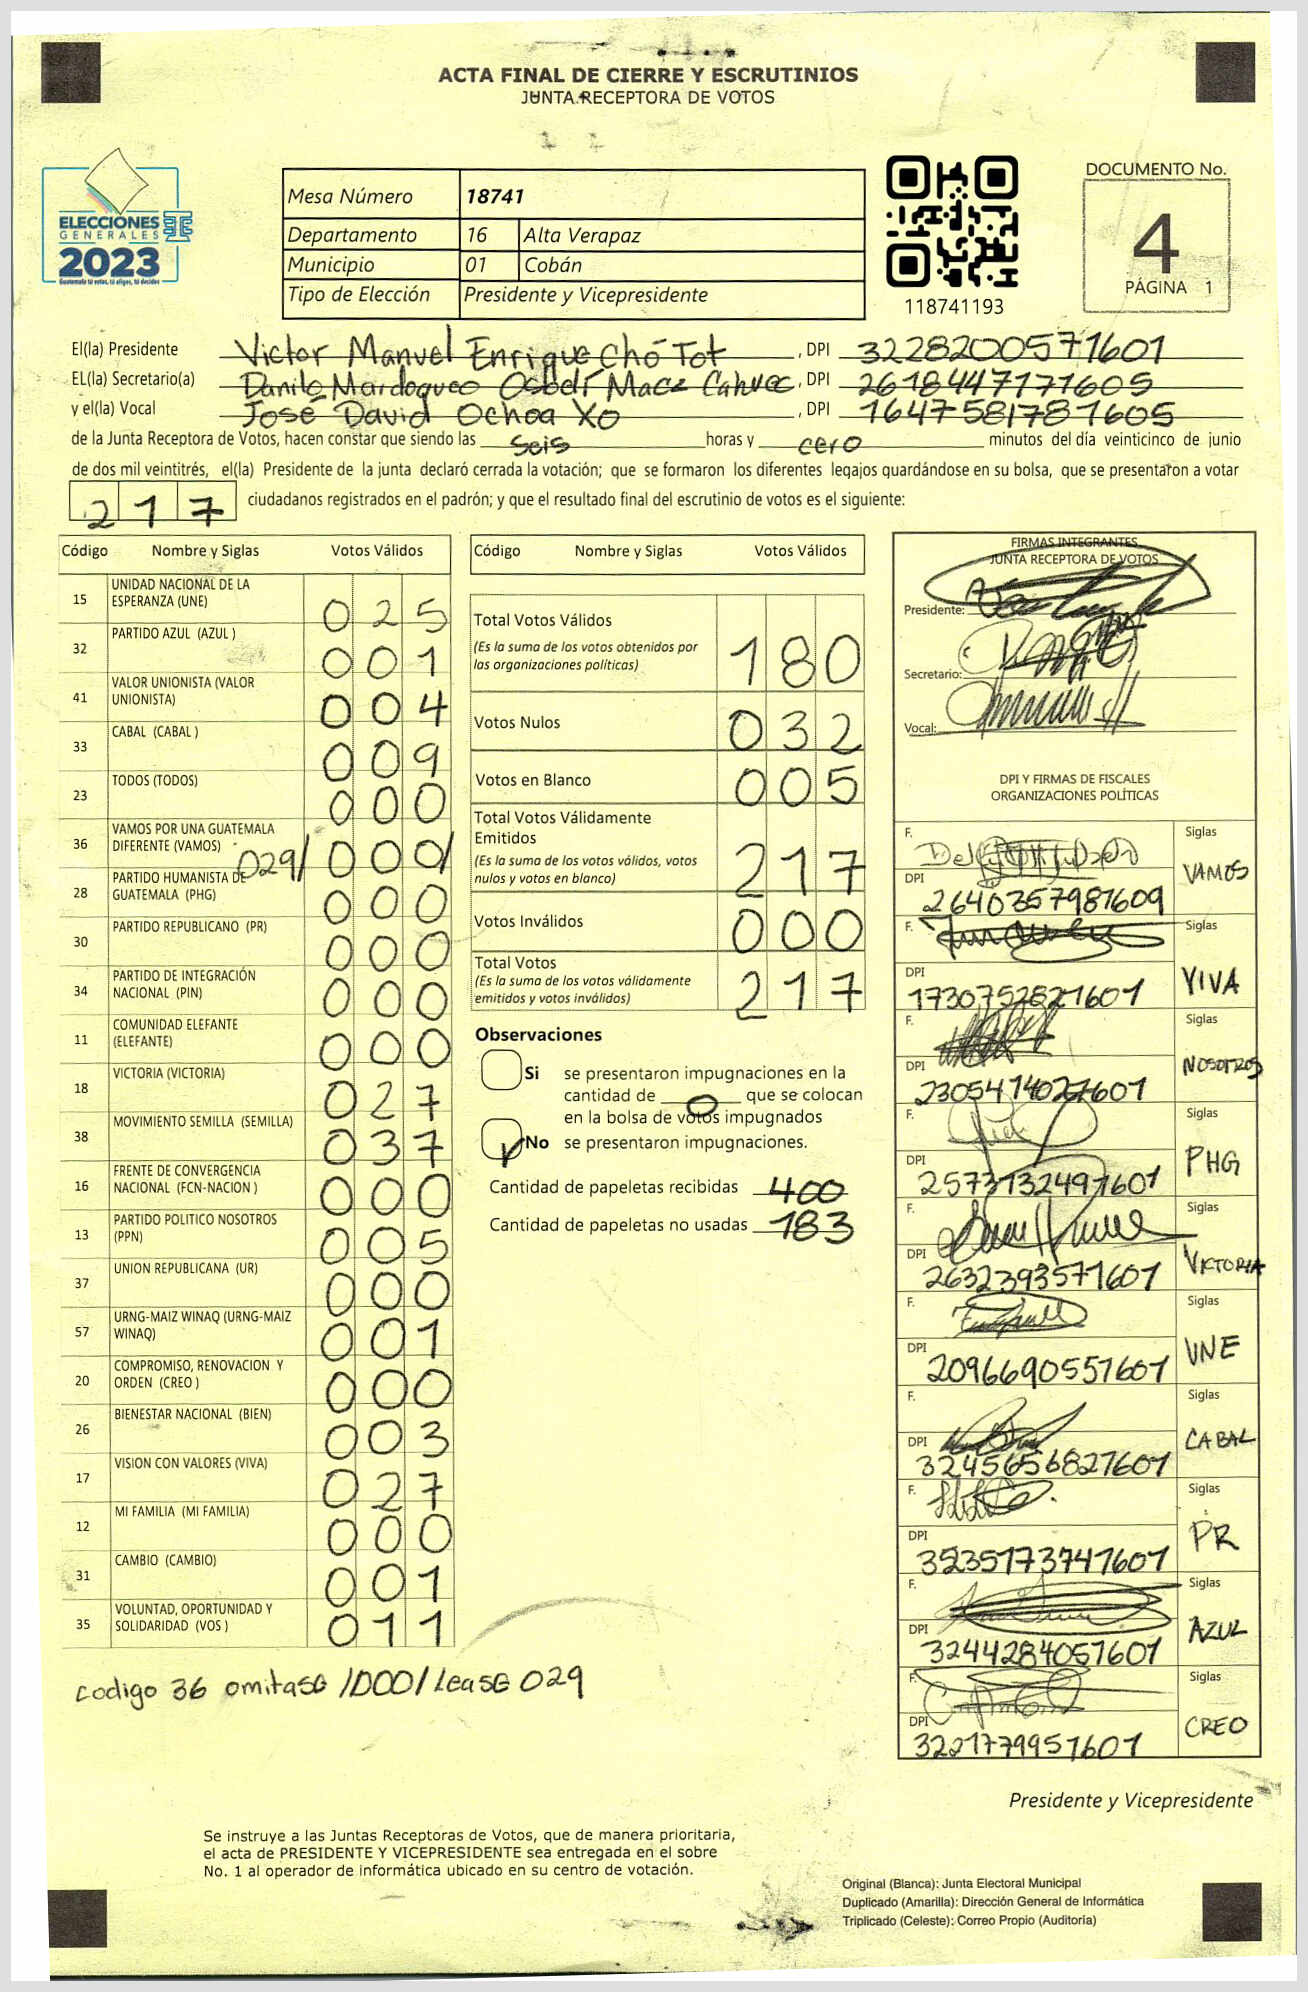 ACTA FINAL DE CIERRE Y ESCRUTINIOS
JUNTA RECEPTORA DE VOTOS
ELECCIONES
GENERALES
2023
Guatemala tú votas, tú eliges, tú decides
Mesa Número 18741
Departamento 16 Alta Verapaz
Municipio 01 Cobán
Tipo de Elección Presidente y Vicepresidente
118741193
DOCUMENTO No.
4
PÁGINA 1
El(la) Presidente Victor Manuel Enrique Chó Tot, DPI 3228200571601
EL(la) Secretario(a) Danilo Mardoqueo Osbelí Macz Cahuec, DPI 2618447171605
y el(la) Vocal José David Ochoa Xo, DPI 1647581781605
de la Junta Receptora de Votos, hacen constar que siendo las seis horas y cero minutos del día veinticinco de junio
de dos mil veintitrés, el(la) Presidente de la junta declaró cerrada la votación; que se formaron los diferentes legajos guardándose en su bolsa, que se presentaron a votar
217 ciudadanos registrados en el padrón; y que el resultado final del escrutinio de votos es el siguiente:
Código Nombre y Siglas Votos Válidos
15 UNIDAD NACIONAL DE LA ESPERANZA (UNE) 025
32 PARTIDO AZUL (AZUL ) 001
41 VALOR UNIONISTA (VALOR UNIONISTA) 004
33 CABAL (CABAL ) 009
23 TODOS (TODOS) 000
36 VAMOS POR UNA GUATEMALA DIFERENTE (VAMOS) 029/000/
28 PARTIDO HUMANISTA DE GUATEMALA (PHG) 000
30 PARTIDO REPUBLICANO (PR) 000
34 PARTIDO DE INTEGRACIÓN NACIONAL (PIN) 000
11 COMUNIDAD ELEFANTE (ELEFANTE) 000
18 VICTORIA (VICTORIA) 027
38 MOVIMIENTO SEMILLA (SEMILLA) 037
16 FRENTE DE CONVERGENCIA NACIONAL (FCN-NACION ) 000
13 PARTIDO POLITICO NOSOTROS (PPN) 005
37 UNION REPUBLICANA (UR) 000
57 URNG-MAIZ WINAQ (URNG-MAIZ WINAQ) 001
20 COMPROMISO, RENOVACION Y ORDEN (CREO ) 000
26 BIENESTAR NACIONAL (BIEN) 003
17 VISION CON VALORES (VIVA) 027
12 MI FAMILIA (MI FAMILIA) 000
31 CAMBIO (CAMBIO) 001
35 VOLUNTAD, OPORTUNIDAD Y SOLIDARIDAD (VOS ) 011
codigo 36 omitase /000/ Lease 029
Código Nombre y Siglas Votos Válidos
Total Votos Válidos 180
(Es la suma de los votos obtenidos por
las organizaciones políticas)
Votos Nulos 032
Votos en Blanco 005
Total Votos Válidamente
Emitidos 217
(Es la suma de los votos válidos, votos
nulos y votos en blanco)
Votos Inválidos 000
Total Votos 217
(Es la suma de los votos válidamente
emitidos y votos inválidos)
Observaciones
Si se presentaron impugnaciones en la
cantidad de 0 que se colocan
en la bolsa de votos impugnados
No se presentaron impugnaciones.
Cantidad de papeletas recibidas 400
Cantidad de papeletas no usadas 183
FIRMAS INTEGRANTES
JUNTA RECEPTORA DE VOTOS
Presidente:
Secretario:
Vocal:
DPI Y FIRMAS DE FISCALES
ORGANIZACIONES POLÍTICAS
F. Siglas
DPI 2640357981609 VAMOS
F. Siglas
DPI 1730752821601 VIVA
F. Siglas
DPI 2305414027601 NOSOTROS
F. Siglas
DPI 2573132491601 PHG
F. Siglas
DPI 2632393571601 VICTORIA
F. Siglas
DPI 2096690551601 UNE
F. Siglas
DPI 3245656827601 CABAL
F. Siglas
DPI 3235173741601 PR
F. Siglas
DPI 3244284051601 AZUL
F. Siglas
DPI 3221779951601 CREO
Presidente y Vicepresidente
Se instruye a las Juntas Receptoras de Votos, que de manera prioritaria,
el acta de PRESIDENTE Y VICEPRESIDENTE sea entregada en el sobre
No. 1 al operador de informática ubicado en su centro de votación.
Original (Blanca): Junta Electoral Municipal
Duplicado (Amarilla): Dirección General de Informática
Triplicado (Celeste): Correo Propio (Auditoría)